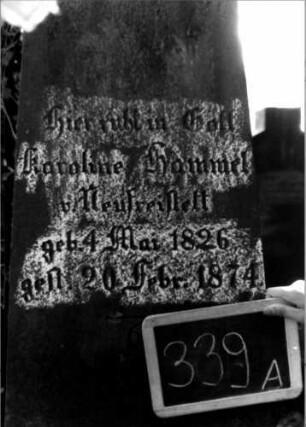 Hier ruht in Gott
Karoline Hammel
v. Neufreistett
geb. 4 Mai 1826
gest. 20 Febr. 1874
339 A